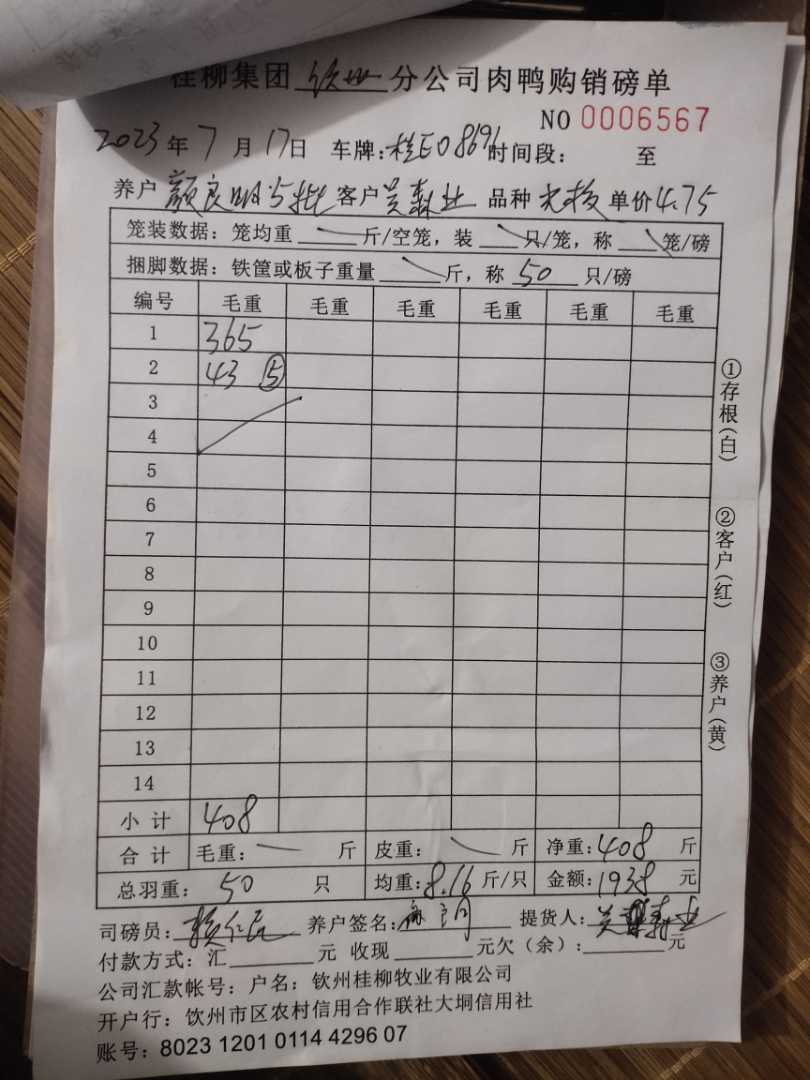 桂柳集团 钦州 分公司肉鸭购销磅单
NO 0006567
2023 年 7 月 17 日 车牌:桂E0869 时间段: 至
养户 颜良明5批 客户 吴森业 品种 单价 4.75
笼装数据:笼均重 斤/空笼,装 只/笼,称 笼/磅
捆脚数据:铁筐或板子重量 斤,称 50 只/磅
编号 毛重 毛重 毛重 毛重 毛重 毛重
1 365
2 43 ⑤
3
4
5
6
7
8
9
10
11
12
13
14
小计 408
合计 毛重: 斤 皮重: 斤 净重:408 斤
总羽重: 50 只 均重:8.16 斤/只 金额:1938 元
①存根(白)
②客户(红)
③养户(黄)
司磅员: 养户签名: 提货人:吴森业
付款方式:汇 元 收现 元欠(余): 元
公司汇款帐号:户名:钦州桂柳牧业有限公司
开户行:钦州市区农村信用合作联社大垌信用社
账号:8023 1201 0114 4296 07